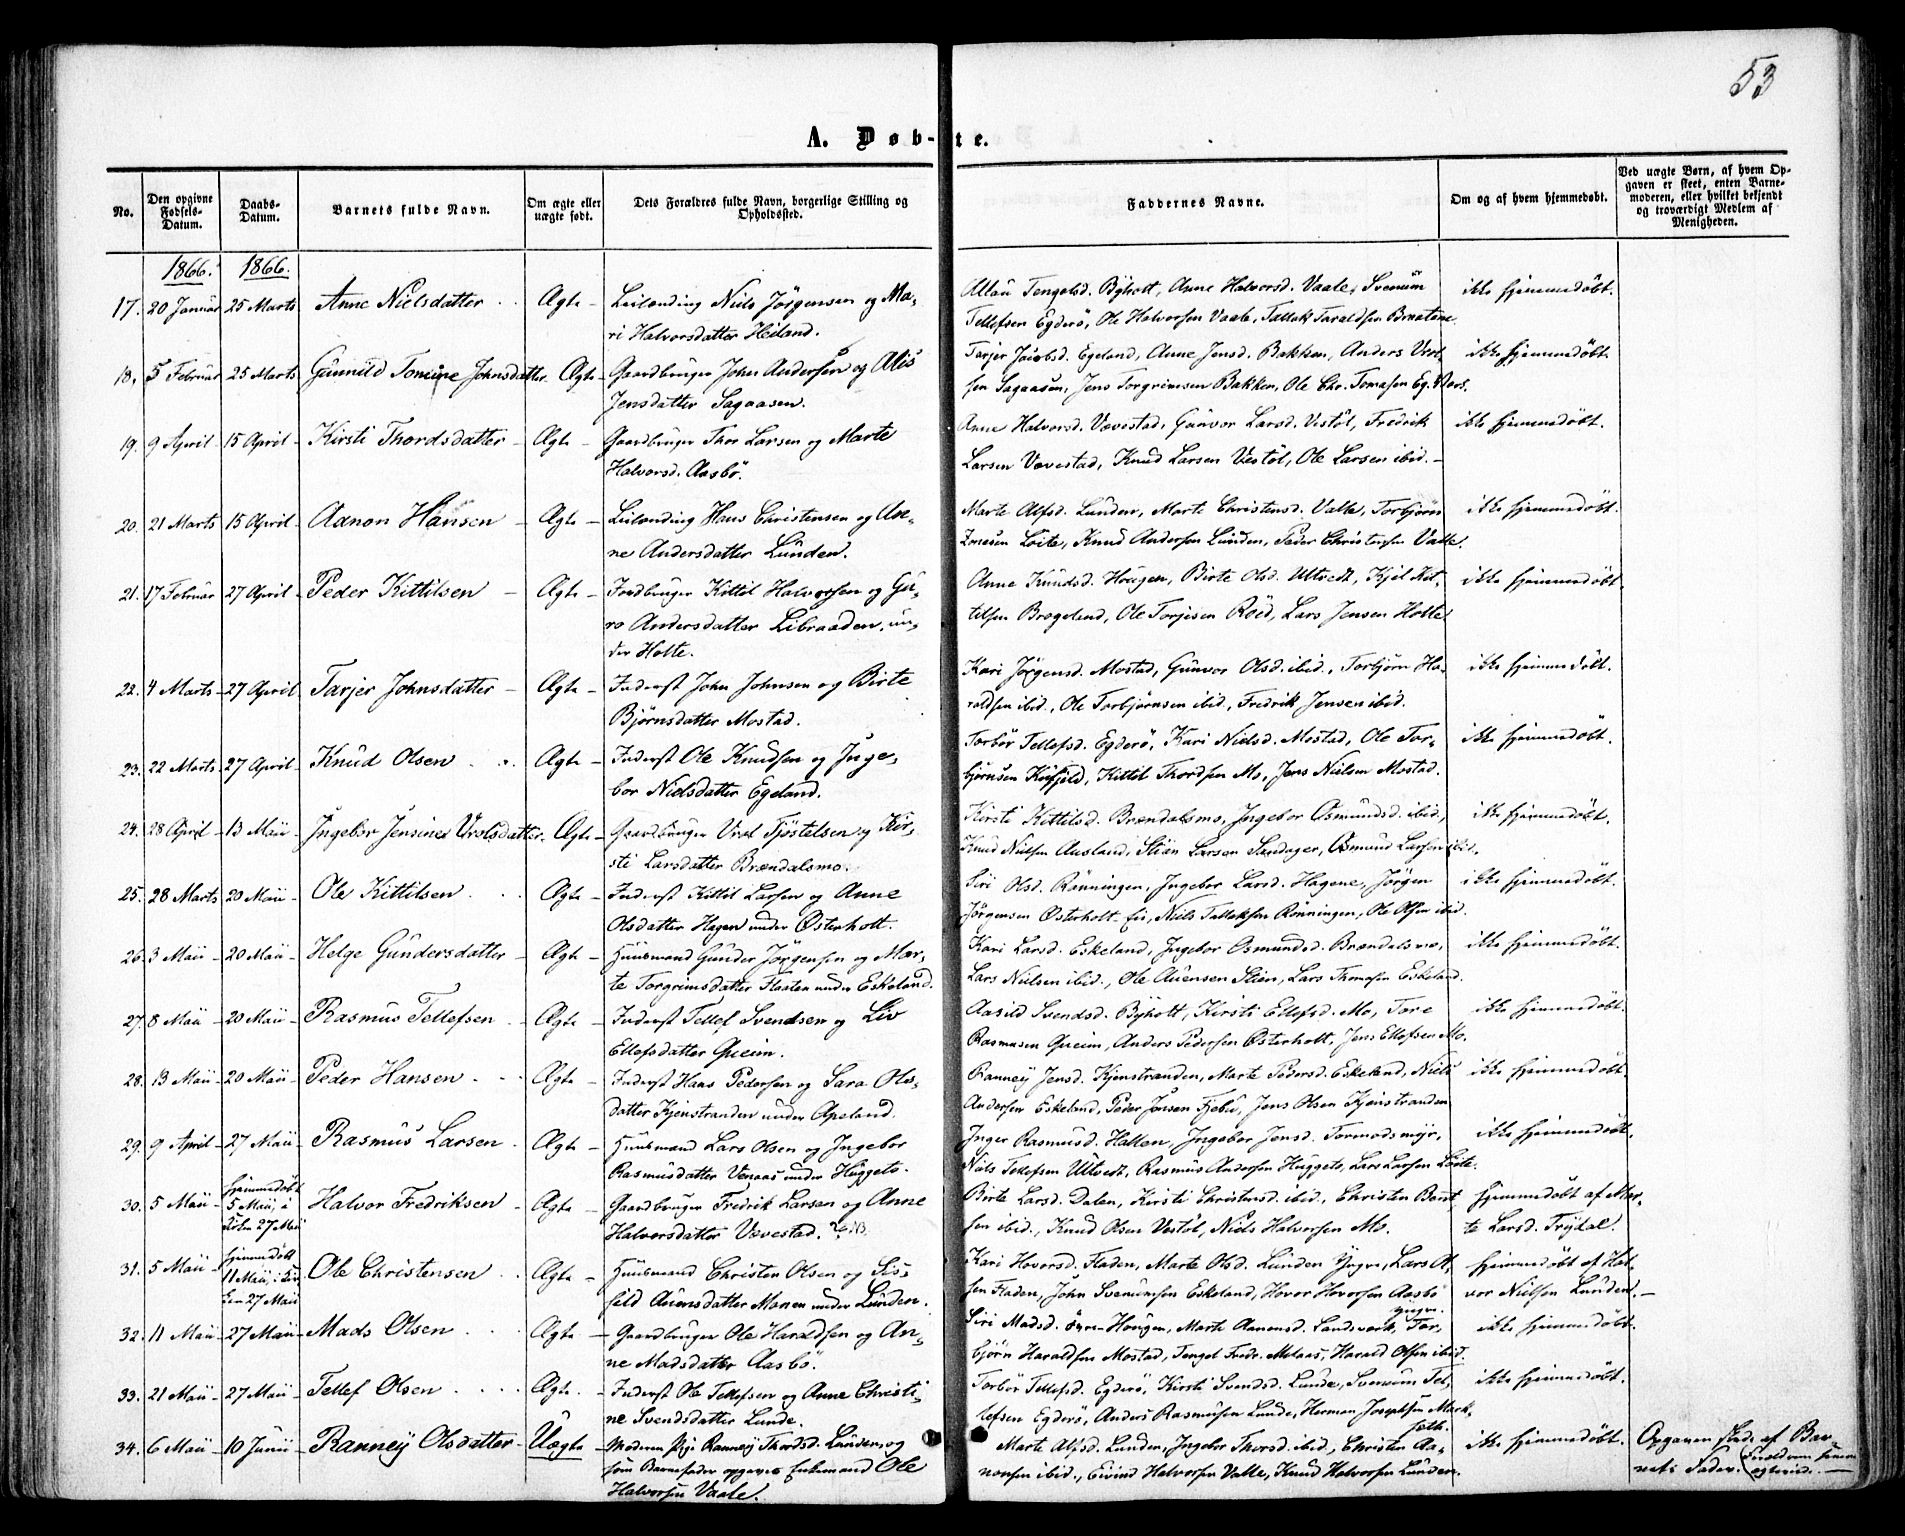 53
A. Døb-te.
No.
Den opgivne Fødsels-Datum.
Daabs-Datum.
Barnets fulde Navn.
Om ægte eller uægte født.
Dets Forældres fulde Navn, borgerlige Stilling og Opholdssted.
Faddernes Navne.
Om og af hvem hjemmedøbt.
Ved uægte Børn, af hvem Opgaven er skeet, enten Barnemoderen, eller hvilket bekjendt og troværdigt Medlem af Menigheden.
1866. 1866.
17. 20 Januar 25 Marts Anne Nielsdatter Ægte Leilænding Niels Jörgensen og Ma-
ri Halvorsdatter Heiland.
Tengelsd. Byholt, Anne Halvorsd. Vaale, Svenum
Tellefsen Egderö, Ole Halvorsen Vaale, Tallak Taraldsen
ikke hjemmedöbt.
18. 5 Februar 25 Marts Gunnild Tomine Johnsdatter Ægte Gaardbruger John Andersen og Alis
Jensdatter Sagaasen.
Tarjer Jacobsd. Egeland, Anne Jensd. Bakken, Anders
sen Sagaasen, Jens Torgrimsen Bakken, Ole Chr. Tomasen
ikke hjemmedöbt.
19. 9 April 15 April Kirsti Thordsdatter Ægte Gaardbruger Thor Larsen og Marte
Halvorsd. Aasbö.
Anne Halvorsd. Vævestad, Gunvor Larsd. Vestöl, Fredrik
Larsen Vævestad, Knud Larsen Vestöl, Ole Larsen ibid.
ikke hjemmedöbt.
20. 21 Marts 15 April Aanon Hansen Ægte Leilænding Hans Christensen og An-
ne Andersdatter Lunden.
Marte Alfsd. Lunden, Marte Christensd. Valle, Torbjörn
Löite, Knud Andersen Lunden, Peder Christensen Valle.
ikke hjemmedöbt.
21. 17 Februar 27 April Peder Kittilsen Ægte Jordbruger Kittil Halvorsen og Gu-
ro Andersdatter Libraaden, un-
der Holte.
Anne Knudsd. Hougen, Birte Olsd. Ultvedt, Kjel Kit-
tilsen Brægeland, Ole Torjisen Röid, Lars Jensen Holte
ikke hjemmedöbt
22. 4 Marts 27 April Tarjer Johnsdatter Ægte Inderst John Johnsen og Birte
Björnsdatter Mostad.
Kari Jörgensd. Mostad, Gunvor Olsd. ibid., Torbjörn Ha-
raldsen ibid., Ole Torbjörnsen ibid., Fredrik Jensen ibid.
ikke hjemmedöbt.
23. 22 Marts 27 April Knud Olsen Ægte Inderst Ole Knudsen og Inge-
bor Nielsdatter Egeland.
Torbör Tellefsd. Egderö, Kari Nielsd. Mostad, Ole Tor-
björnsen Kufjeld, Kittil Thordsen Mo, Jens Nielsen Mostad.
ikke hjemmedöbt.
24. 28 April 13 Maii Ingebor Jensine Vrolsdatter Ægte Gaardbruger Vrol Tjöstelsen og Kir-
sti Larsdatter Brændalsmo.
Kirsti Kittilsd. Brændalsmo, Ingebor Osmundsd. ibid.,
Knud Nielsen Ausland, Stian Larsen Sandager, Osmund Larsen ibid.
ikke hjemmedöbt.
25. 28 Marts 20 Maii Ole Kittilsen Ægte Inderst Kittil Larsen og Anne
Olsdatter Hagen under Österholt.
Siri Olsd. Rönningen, Ingebor Larsd. Hagene, Jörgen
Jörgensen Österholt- Niels Tallaksen Rönningen, Ole Olsen ibid.
ikke hjemmedöbt.
26. 3 Maii 20 Maii Helge Gundersdatter Ægte Huusmand Gunder Jörgensen og Mar-
te Torgrimsdatter Flaaten under Eskeland.
Kari Larsd. Eskeland, Ingebor Osmundsd. Brændalsmo,
Lars Nielsen ibid., Ole Auensen Stien, Lars Thomasen Eskeland.
ikke hjemmedöbt.
27. 8 Maii 20 Maii Rasmus Tellefsen Ægte Inderst Tellef Svendsen og Liv
Ellefsdatter Qveim.
Aasild Svendsd. Byholt, Kirsti Ellefsd. Mo, Tore
Rasmusen Qveim, Anders Pedersen Österholt, Jens Ellefsen Mo.
ikke hjemmedöbt.
28. 13 Maii 20 Maii Peder Hansen Ægte Inderst Hans Pedersen og Sara Ols-
datter Kjenstranden under Apeland.
Ranney Jensd. Kjenstranden, Marte Pedersd. Eskeland, Niels
Andersen Eskeland, Peder Jensen Fjebu, Jens Olsen Kjenstranden
ikke hjemmedöbt.
29. 9 April 27 Maii Rasmus Larsen Ægte Huusmand Lars Olsen og Ingebor
Rasmusdatter Venaas under Huggeto.
Inger Rasmusd. Hallen, Ingebor Jensd. Tormodsmyr,
Niels Tellefsen Ultvedt, Rasmus Andersen Huggeto, Lars Larsen Löite.
ikke hjemmedöbt.
30. 5 Maii hjemmedöbt 5 Maii, i Kirken 27 Maii Halvor Fredriksen Ægte Gaardbruger Fredrik Larsen og Anne
Halvorsdatter Vævestad.
Birte Larsd. Dalen, Kirsti Christensd. ibid., Christen Bent
sen ibid., Knud Olsen Vestöl, Niels Halvorsen Mo.
hjemmedöbt af Mar-
te Larsd. Trydal.
31. 5 Maii hjemmedöbt 11 Maii, i Kir- ken 27 Maii Ole Christensen Ægte Huusmand Christen Olsen og Sis-
seld Auensdatter Monen under Lunden.
Kari Hovorsd. Fladen, Marte Olsd. Lunden Yngre, Lars Ol-
sen Fladen, John Svenumsen Eskeland, Hovor Hovorsen Aasbö yngre.
hjemmedöbt af Hal-
vor Nielsen Lunden.
32. 11 Maii 27 Maii Mads Olsen Ægte Gaardbruger Ole Haraldsen og An-
ne Madsdatter Aasbö.
Siri Madsd. Hougen, Marte Aanonsd. Landsverk, Tor-
björn Haraldsen Mostad, Tengel Fredr. Milaas, Harald Olsen ibid.
ikke hjemmedöbt.
33. 21 Maii 27 Maii Tellef Olsen Ægte Inderst Ole Tellefsen og Anne Christi-
ne Svendsdatter Lunde.
Torbör Tellefsd. Egderö, Kirsti Svendsd. Lunde, Svenum Tel-
lefsen Egderö, Anders Rasmusen Lunde, Herman Josephsen
ikke hjemmedöbt.
34. 6 Maii 10 Junii Ranney Olsdatter Uægte Moderen Pige Ranney Thordsd. Lunden, og
som Barnefader opgives Enkemand Ole
Halvorsen Vaale.
Marte Alfsd. Lunden, Ingebor Thorsd. ibid., Christen Aa-
nonsen ibid., Eivind Halvorsen Valle, Knud Halvorsen Lunden.
ikke hjemmedöbt.
Opgaven skede af Bar-
nets Fader.